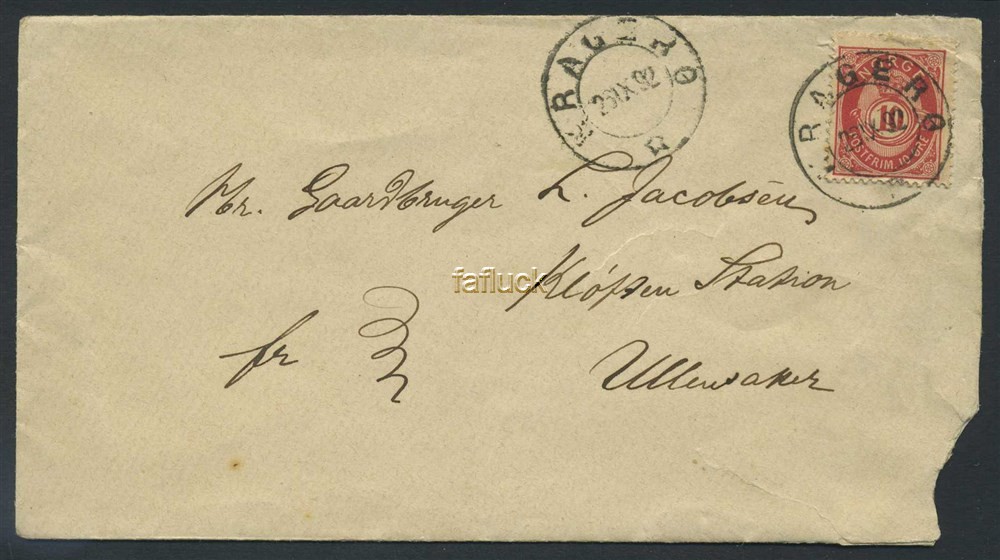 KRAGERØ
26 IX 92
NORGE
10
POSTFRIM. 10 ØRE
KRAGERØ
Hr. Gaardbruger L. Jacobsen
fafluck
Kløften Station
fr
Ullensaker